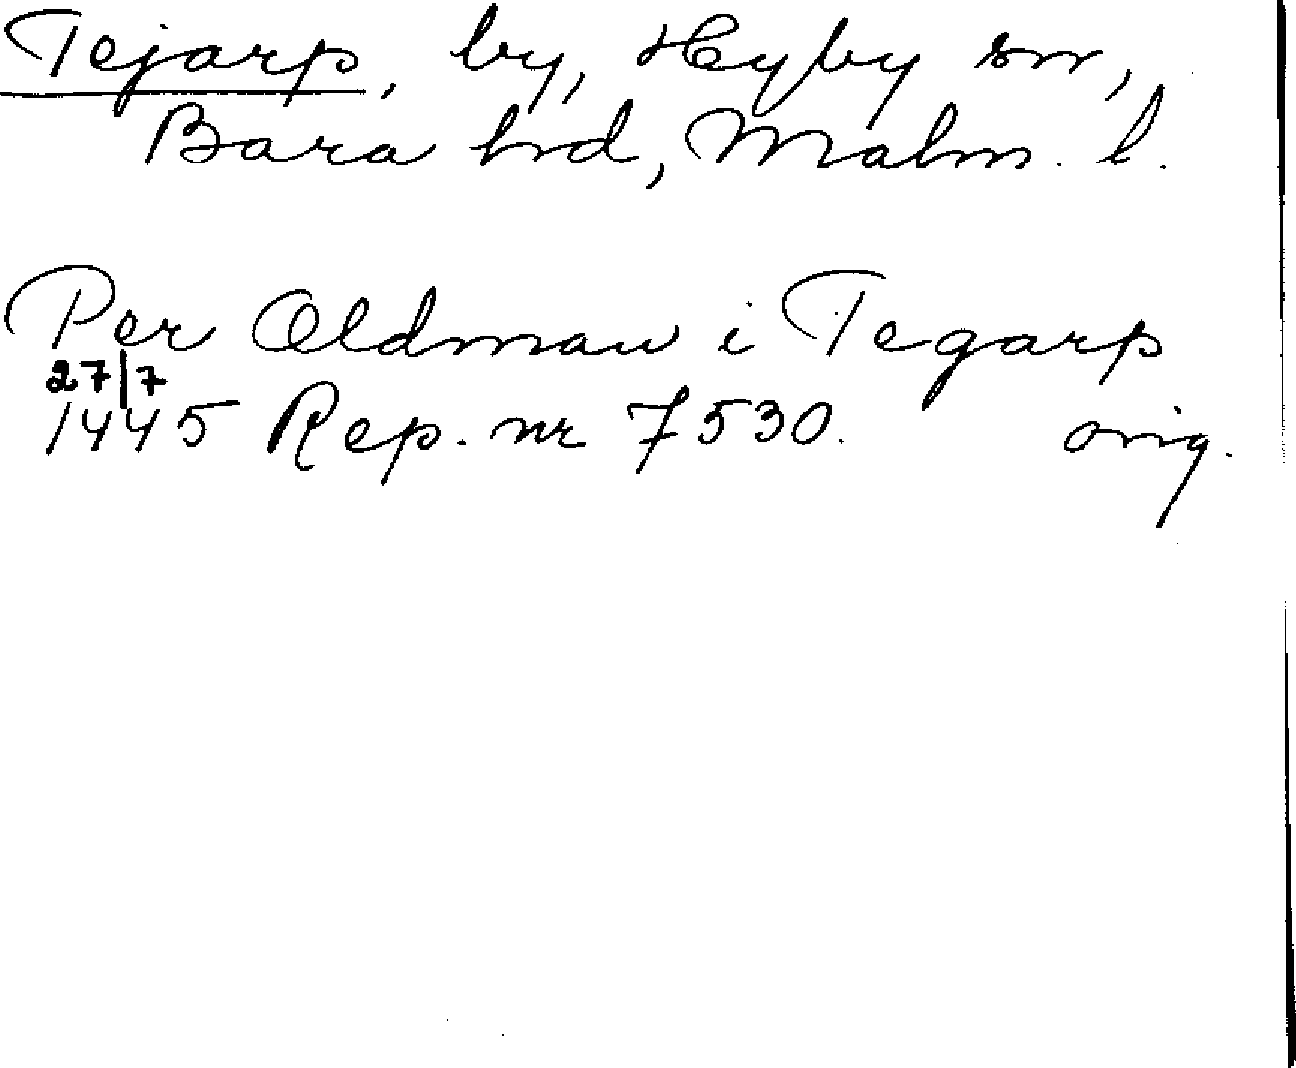 Tejarp, by, Hyby sn,
Bara hd, Malm. l.
Per Oldman i Tegarp
27/7
1445 Rep. nr 7530. orig.